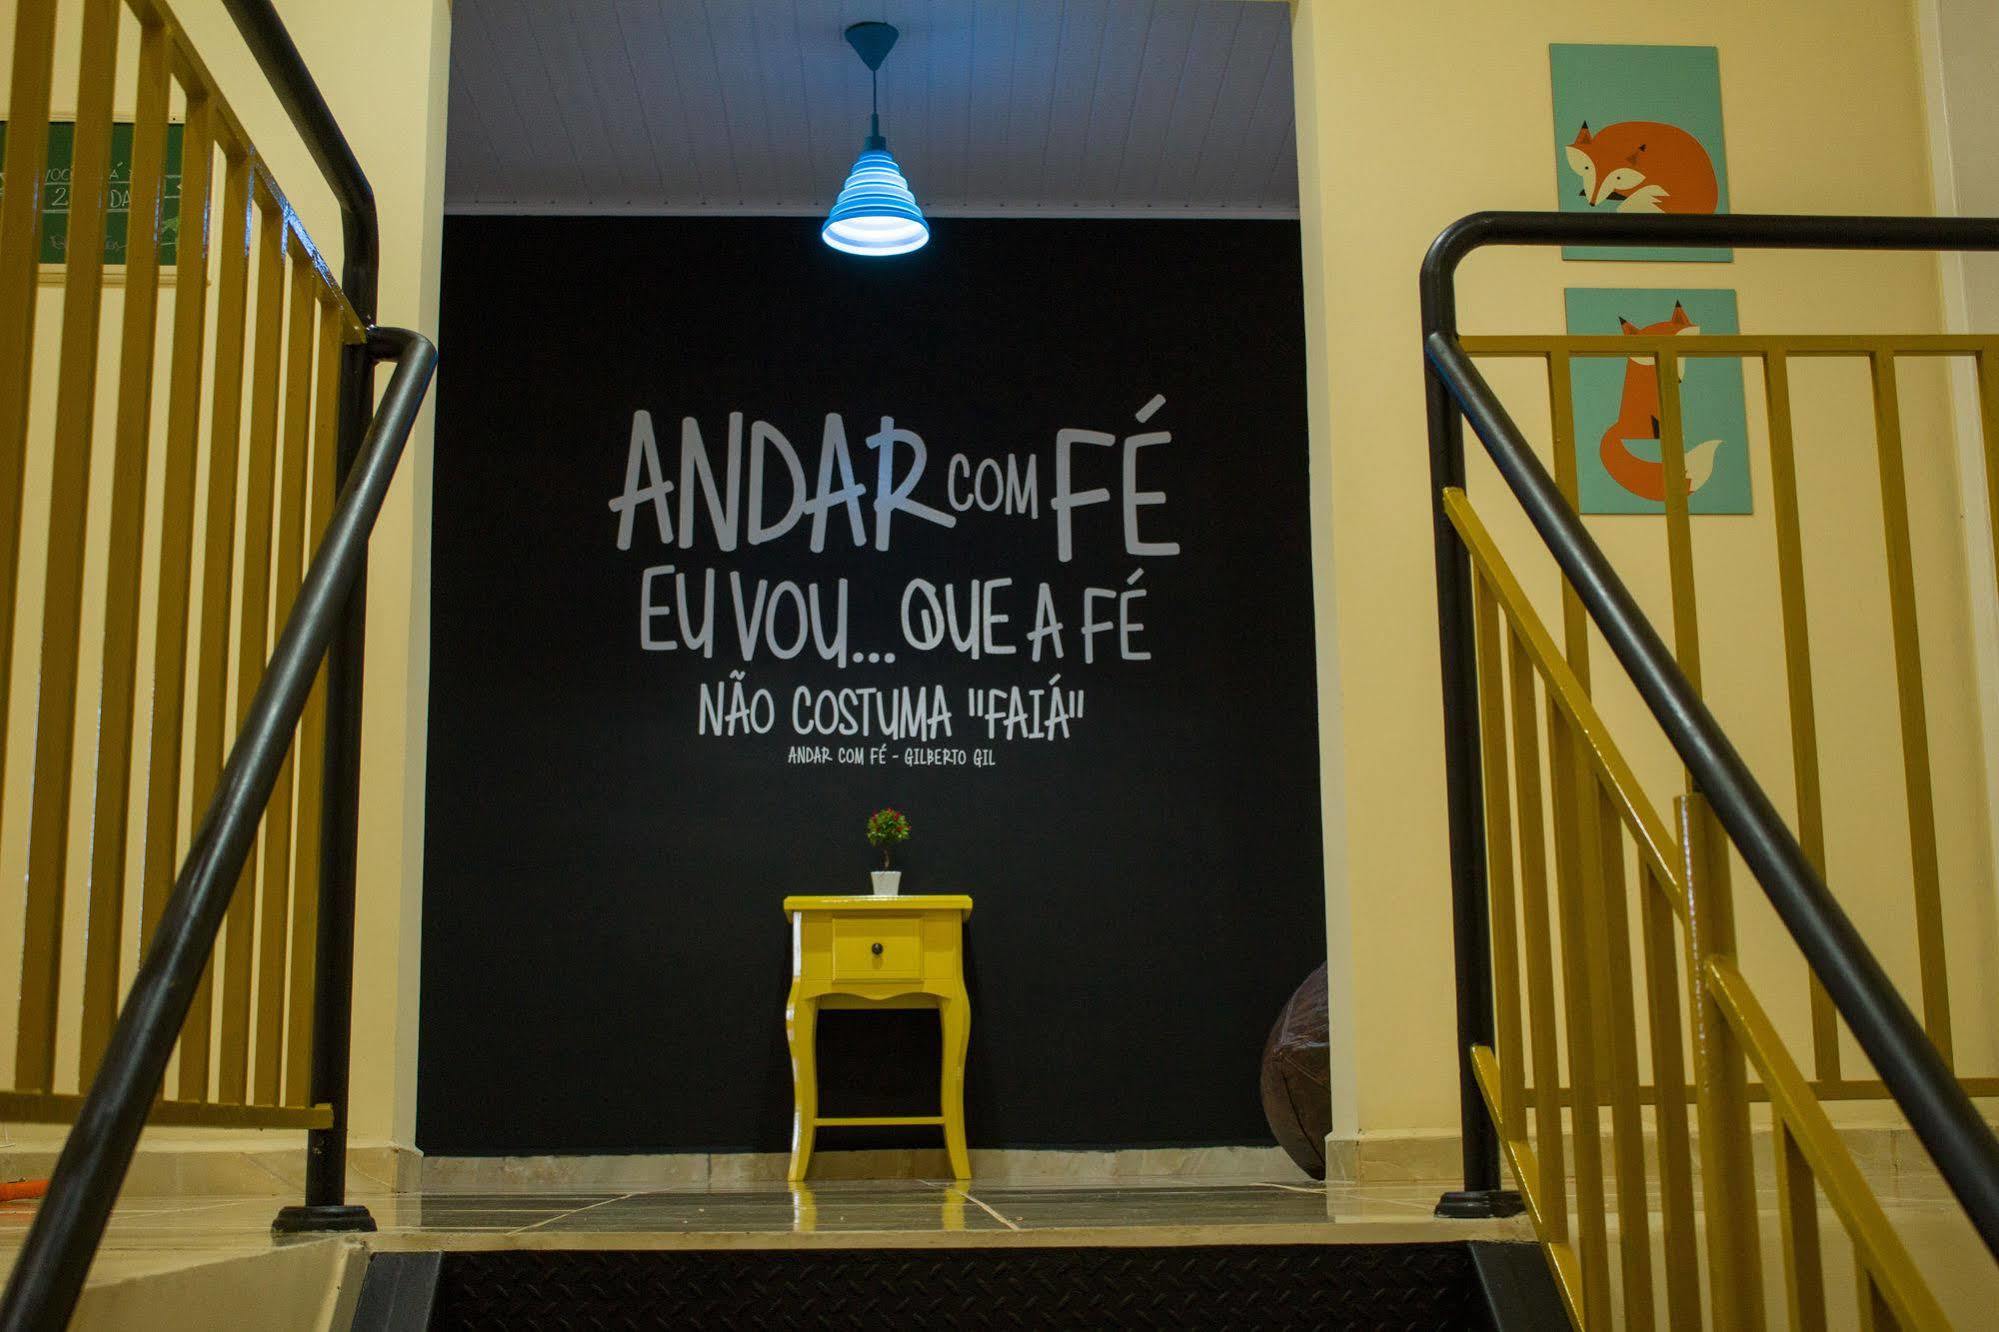 ANDAR COM FÉ
EU VOU... QUE A FÉ
NÃO COSTUMA "FAIÁ"
ANDAR COM FÉ - GILBERTO GIL